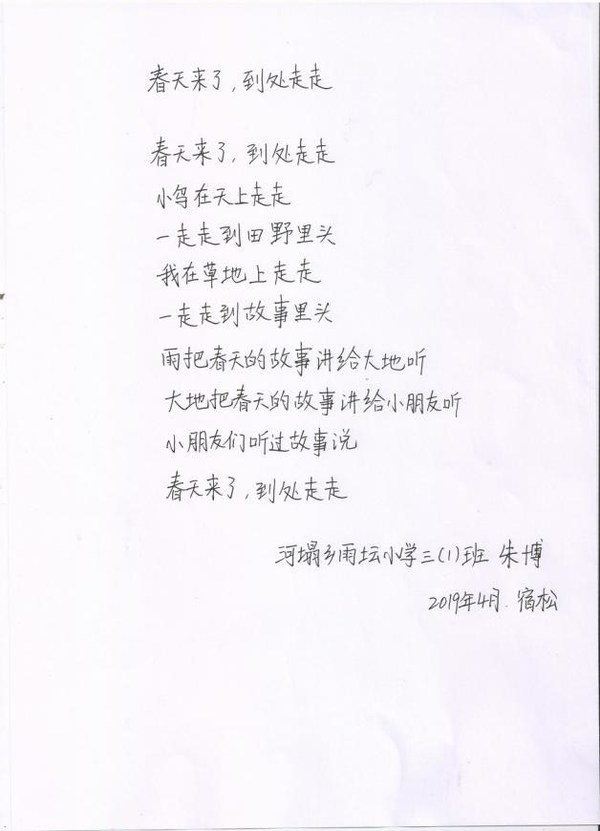 春天来了，到处走走
春天来了，到处走走
小鸟在天上走走
一走走到田野里头
我在草地上走走
一走走到故事里头
雨把春天的故事讲给大地听
大地把春天的故事讲给小朋友听
小朋友们听过故事说
春天来了，到处走走
河塌乡雨坛小学三(1)班 朱博
2019年4月. 宿松